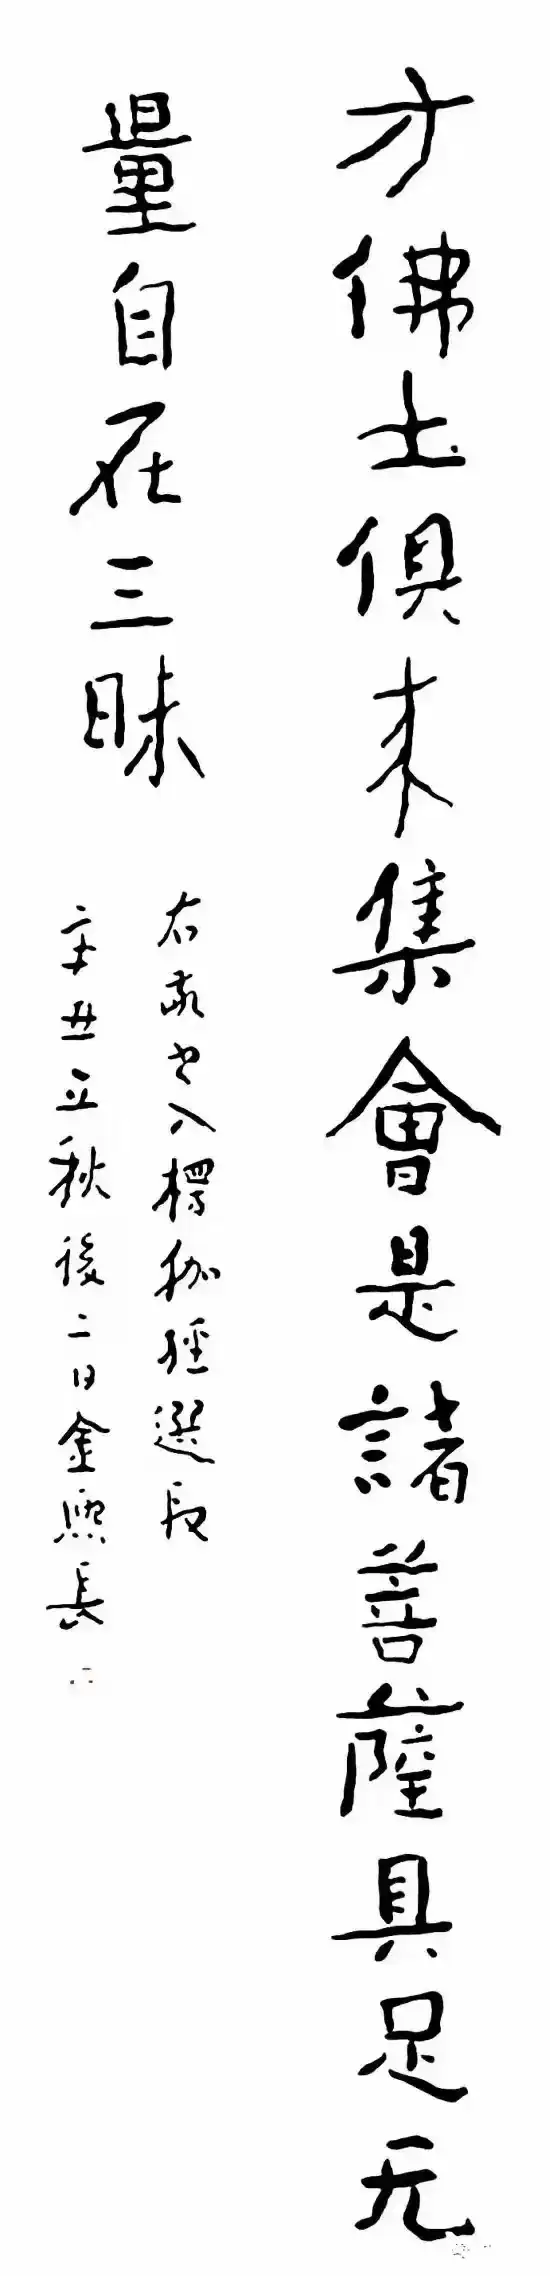 方佛土俱来集會是諸菩薩具足无
量自在三昧
右敬书入楞伽經選段
辛丑立秋後二日金熙長